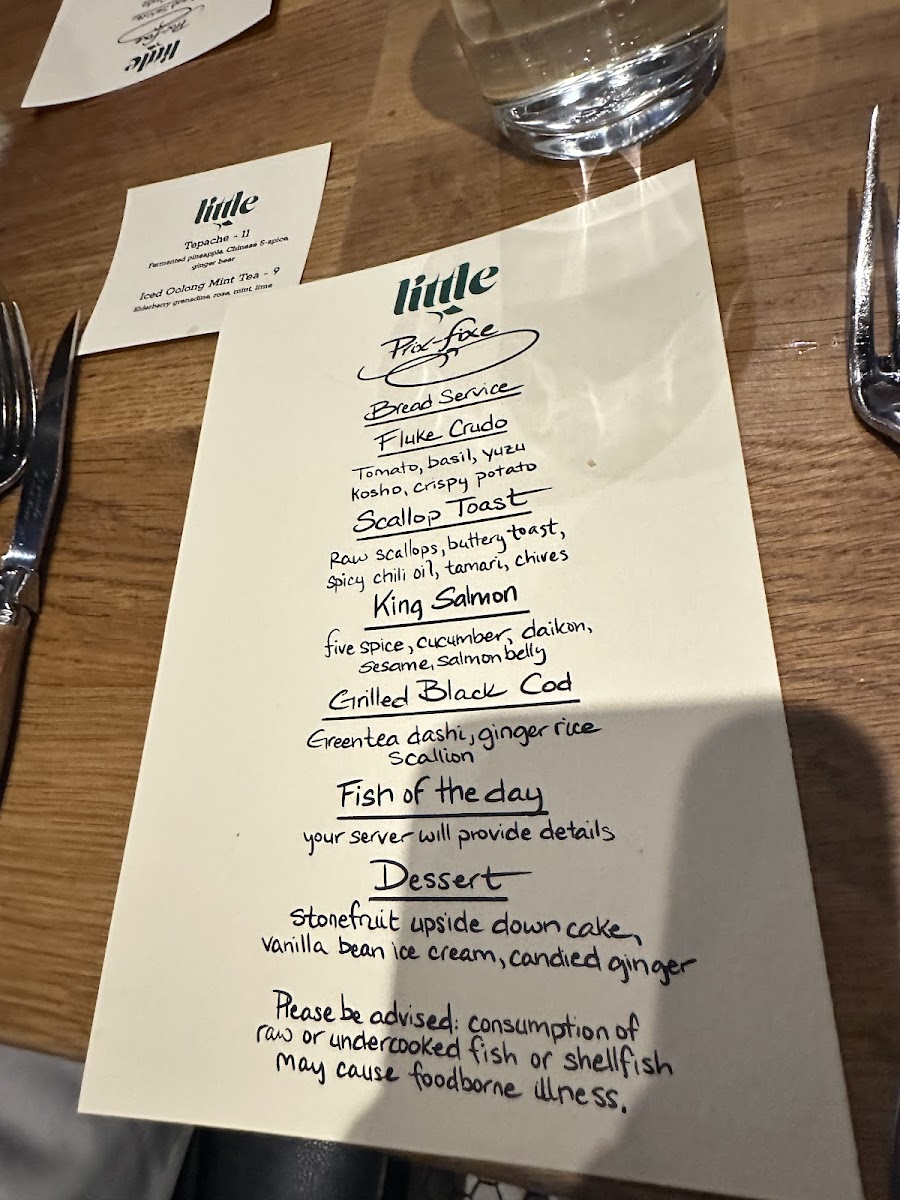 little
Prix-fixe
little
Tepache - 11
Fermented pineapple, Chinese 5-spice,
ginger beer
Iced Oolong Mint Tea - 9
Elderberry grenadine, rose, mint, lime
little
Prix-fixe
Bread Service
Fluke Crudo
Tomato, basil, yuzu
kosho, crispy potato
Scallop Toast
Raw scallops, buttery toast,
spicy chili oil, tamari, chives
King Salmon
five spice, cucumber, daikon,
sesame, salmon belly
Grilled Black Cod
Green tea dashi, ginger rice
scallion
Fish of the day
your server will provide details
Dessert
stonefruit upside down cake,
vanilla bean ice cream, candied ginger
Please be advised: consumption of
raw or undercooked fish or shellfish
may cause foodborne illness.